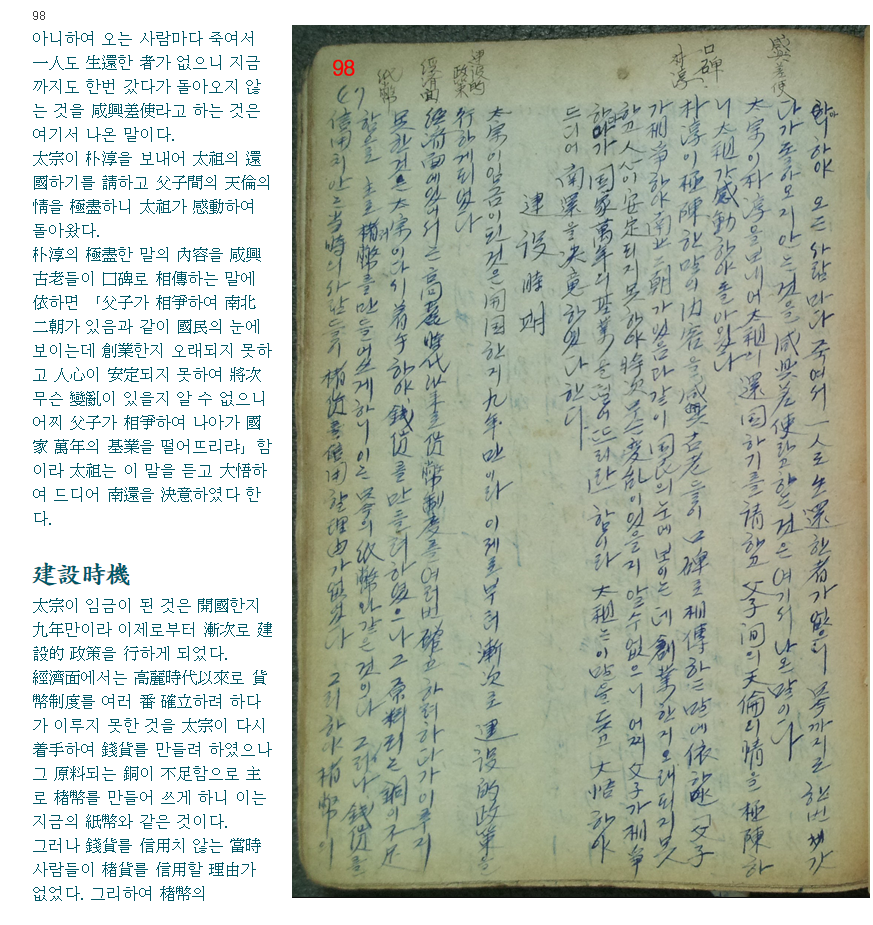 98
아니하여 오는 사람마다 죽여서
一人도 生還한 者가 없으니 지금
까지도 한번 갔다가 돌아오지 않
는 것을 咸興差使라고 하는 것은
여기서 나온 말이다.
太宗이 朴淳을 보내어 太祖의 還
國하기를 請하고 父子間의 天倫의
情을 極盡하니 太祖가 感動하여
돌아왔다.
朴淳의 極盡한 말의 內容을 咸興
古老들이 口碑로 相傳하는 말에
依하면 「父子가 相爭하여 南北
二朝가 있음과 같이 國民의 눈에
보이는데 創業한지 오래되지 못하
고 人心이 安定되지 못하여 將次
무슨 變亂이 있을지 알 수 없으니
어찌 父子가 相爭하여 나아가 國
家 萬年의 基業을 떨어뜨리랴」함
이라 太祖는 이 말을 듣고 大悟하
여 드디어 南還을 決意하였다 한
다.
建設時機
太宗이 임금이 된 것은 開國한지
九年만이라 이제로부터 漸次로 建
設的 政策을 行하게 되었다.
經濟面에서는 高麗時代以來로 貨
幣制度를 여러 番 確立하려 하다
가 이루지 못한 것을 太宗이 다시
着手하여 錢貨를 만들려 하였으나
그 原料되는 銅이 不足함으로 主
로 楮幣를 만들어 쓰게 하니 이는
지금의 紙幣와 같은 것이다.
그러나 錢貨를 信用치 않는 當時
사람들이 楮貨를 信用할 理由가
없었다. 그리하여 楮幣의
98
咸興差使
口碑
朴淳
建設的
政策
經濟面
紙幣
하야 오는 사람마다 죽여서 一人도 生還한 者가 없으니 한번 갔
다가 돌아오지 안는 것을 咸興差使라고 하는 것은 여기서 나온 말이다
太宗이 朴淳을 보내여 太祖의 還国하기를 請하고 父子间의 天倫의 情을 極陳하
니 太祖가 感動하야 돌아왔다
朴淳이 極陳한 말의 内容을 咸興古老들이 口碑로 相傳하는 말에 依하면 「父子
가 相爭하야 南北二朝가 있음과 같이 国民의 눈에 보이는데 創業한지 오래되지 못
하고 人心이 安定되지 못하야 將次 무슨 變亂이 있을지 알 수 없으니 어찌 父子가 相爭
하야 国家萬年의 基業을 떨어뜨리랴」 함이라 太祖는 이 말을 듣고 大悟하야
드디어 南還을 決意하였다 한다
建設時期
太宗이 임금이 된 것은 開国한지 九年만이라 이제로부터 漸次로 建設的 政策을
行하게 되었다
經濟面에 있어서는 高麗時代以来로 貨幣制度를 여러번 確立하려 하다가 이루지
못한 것은 太宗이 다시 着手하야 錢貨를 만들려 하였으나 그 原料되는 銅이 不足
함으로 主로 楮幣를 만들어 쓰게 하니 이는 紙幣와 같은 것이다 그러나 錢貨를
信用치 안는 当時의 사람들이 楮貨를 信用할 理由가 없었다 그리하야 楮幣의